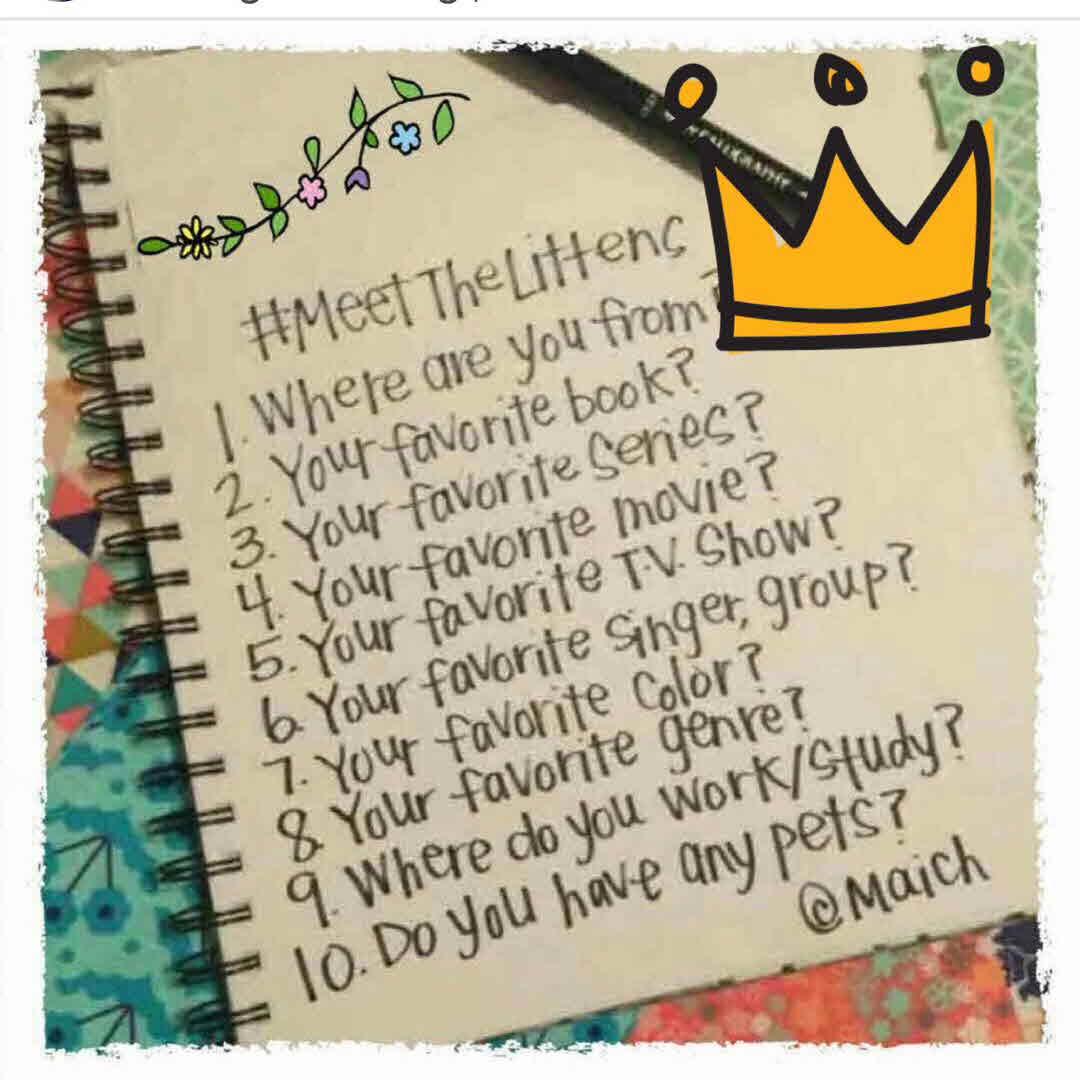 #MeetTheLittens
1. Where are you from?
2. Your favorite book?
3. Your favorite Series?
4. Your favorite movie?
5. Your favorite T.V. Show?
6. Your favorite Singer, group?
7. Your favorite Color?
8. Your favorite genre?
9. Where do you work/study?
10. Do you have any pets?
@Maich